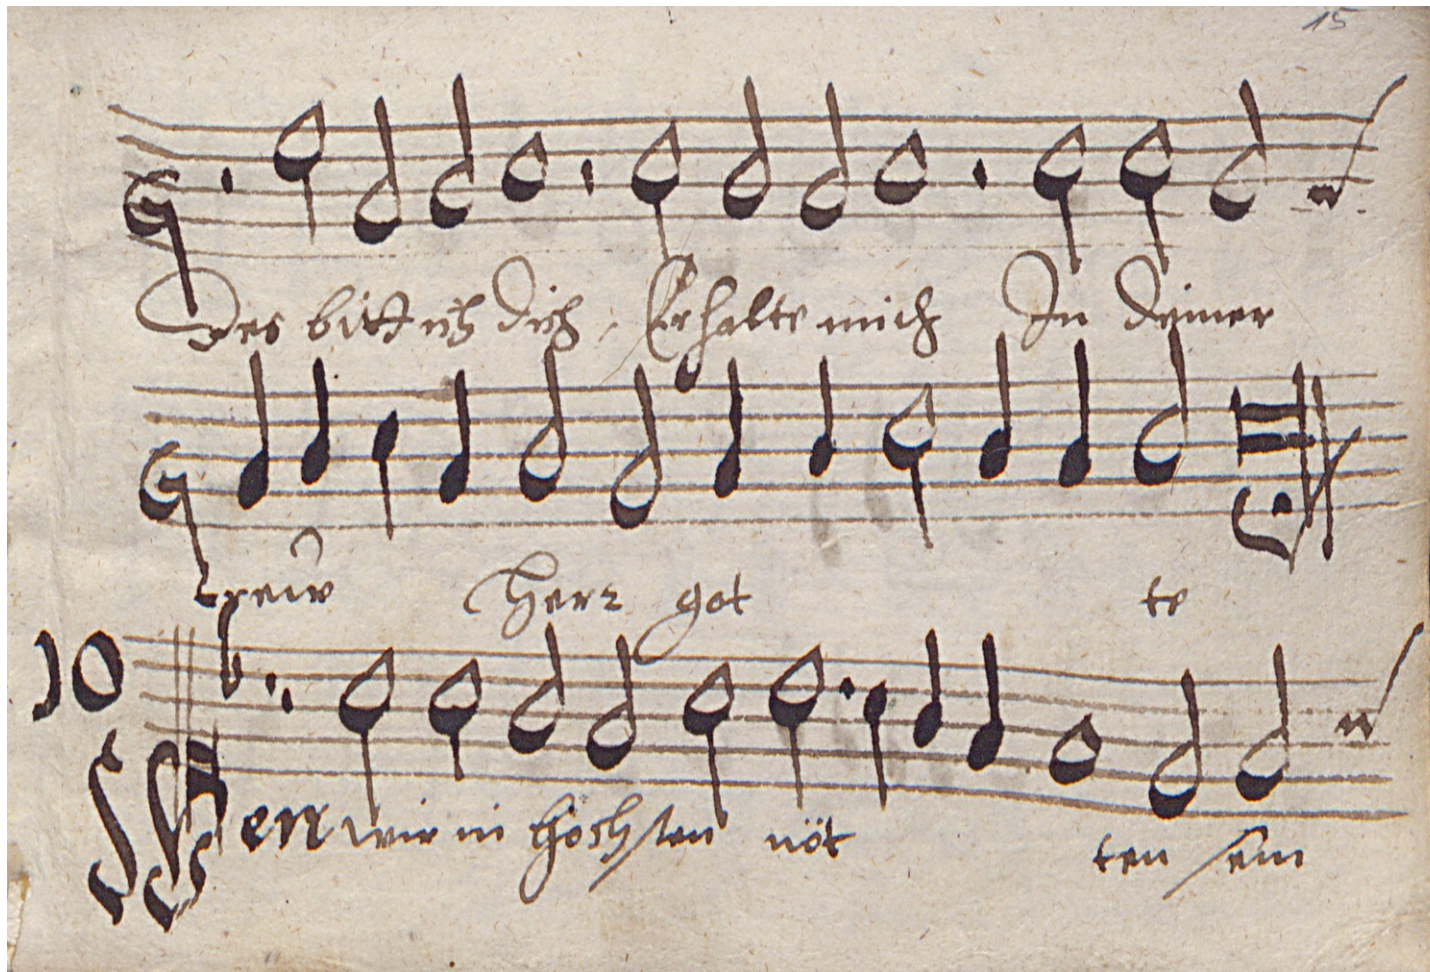 15
Des bitt ich dich, Erhalte mich In deiner
trew Herr got te
10
Wen wir in höchsten nöt ten sein